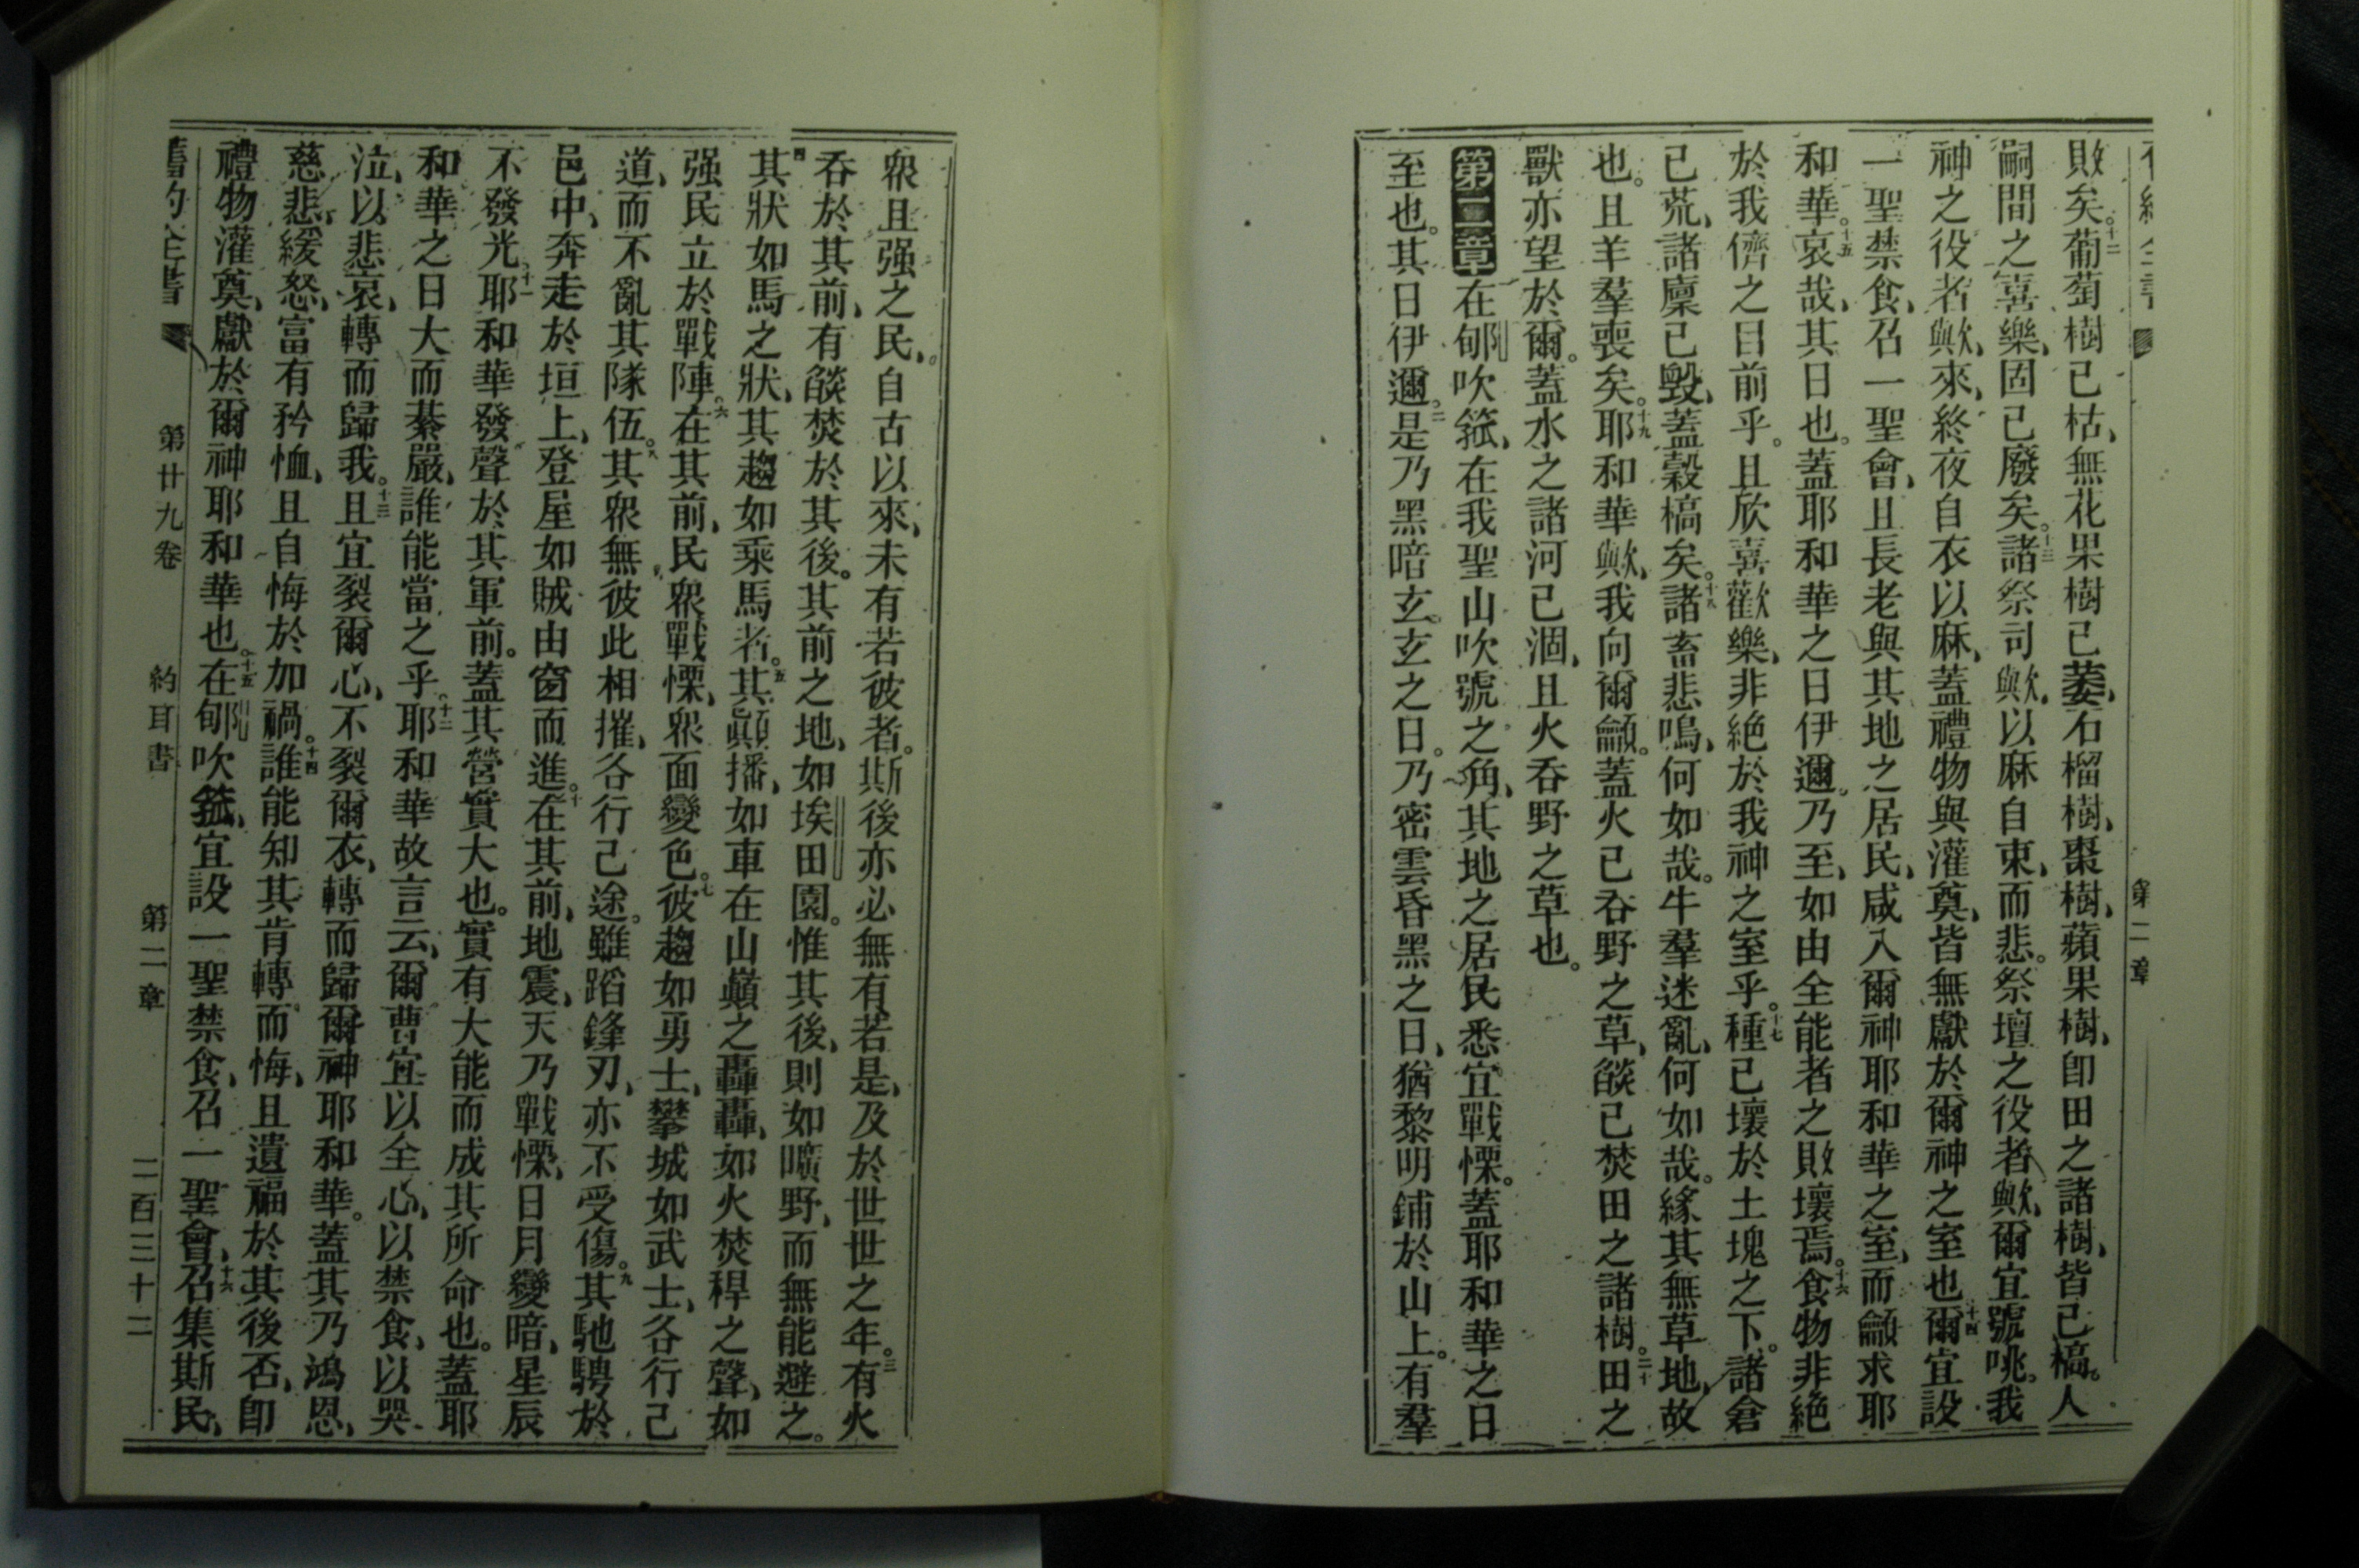 第二章
敗矣。十二葡萄樹己枯、無花果樹己萎、石榴樹、棗樹、蘋果樹、卽田之諸樹、皆己槁。人
嗣間之喜樂、固己廢矣。十三諸祭司歟、以麻自束、而悲。祭壇之役者歟、爾宜號咷。我
神之役者歟、來、終夜自衣以麻、蓋禮物與灌奠、皆無獻於爾神之室也。十四爾宜設
一聖禁食、召一聖會、且長老與其地之居民、咸入爾神耶和華之室、而龥求耶
和華。十五哀哉、其日也。蓋耶和華之日伊邇。乃至、如由全能者之敗壞焉。十六食物非絕
於我儕之目前乎。且欣喜歡樂、非絕於我神之室乎。十七種己壞於土塊之下。諸倉
己荒、諸廩己毀、蓋穀槁矣。十八諸畜悲鳴、何如哉。牛羣迷亂、何如哉。緣其無草地、故
也。且羊羣喪矣。十九耶和華歟、我向爾龥。蓋火己吞野之草、燄己焚田之諸樹。二十田之
獸亦望於爾。蓋水之諸河己涸、且火吞野之草也。
第二章在郇吹箛、在我聖山吹號之角、其地之居民悉宜戰慄。蓋耶和華之日
至也。其日伊邇。二是乃黑暗玄玄之日。乃密雲昏黑之日、猶黎明鋪於山上。有羣
衆且强之民、自古以來、未有若彼者。斯後亦必無有若是、及於世世之年。三有火
吞於其前、有燄焚於其後。其前之地、如埃田園。惟其後、則如曠野、而無能避之。
四其狀如馬之狀、其趨如乘馬者。五其顚播、如車在山巔之轟轟、如火焚稈之聲、如
强民立於戰陣。六在其前、民衆戰慄、衆面變色。七彼趨如勇士、攀城如武士、各行己
道、而不亂其隊伍。八其衆無彼此相摧、各行己途。雖蹈鋒刃、亦不受傷。九其馳騁於
邑中、奔走於垣上、登屋如賊由窗而進。十在其前、地震、天乃戰慄、日月變暗、星辰
不發光。十一耶和華發聲於其軍前。蓋其營實大也。實有大能而成其所命也。蓋耶
和華之日大而綦嚴、誰能當之乎。十二耶和華故言云、爾曹宜以全心、以禁食、以哭
泣、以悲哀、轉而歸我。十三且宜裂爾心、不裂爾衣、轉而歸爾神耶和華。蓋其乃鴻恩、
慈悲、緩怒、富有矜恤、且自悔於加禍。十四誰能知其肯轉、而悔、且遺福於其後否、卽
禮物灌奠、獻於爾神耶和華也。十五在郇吹箛、宜設一聖禁食、召一聖會、十六召集斯民、
舊約全書 第廿九卷 約耳書 第二章 二百三十二